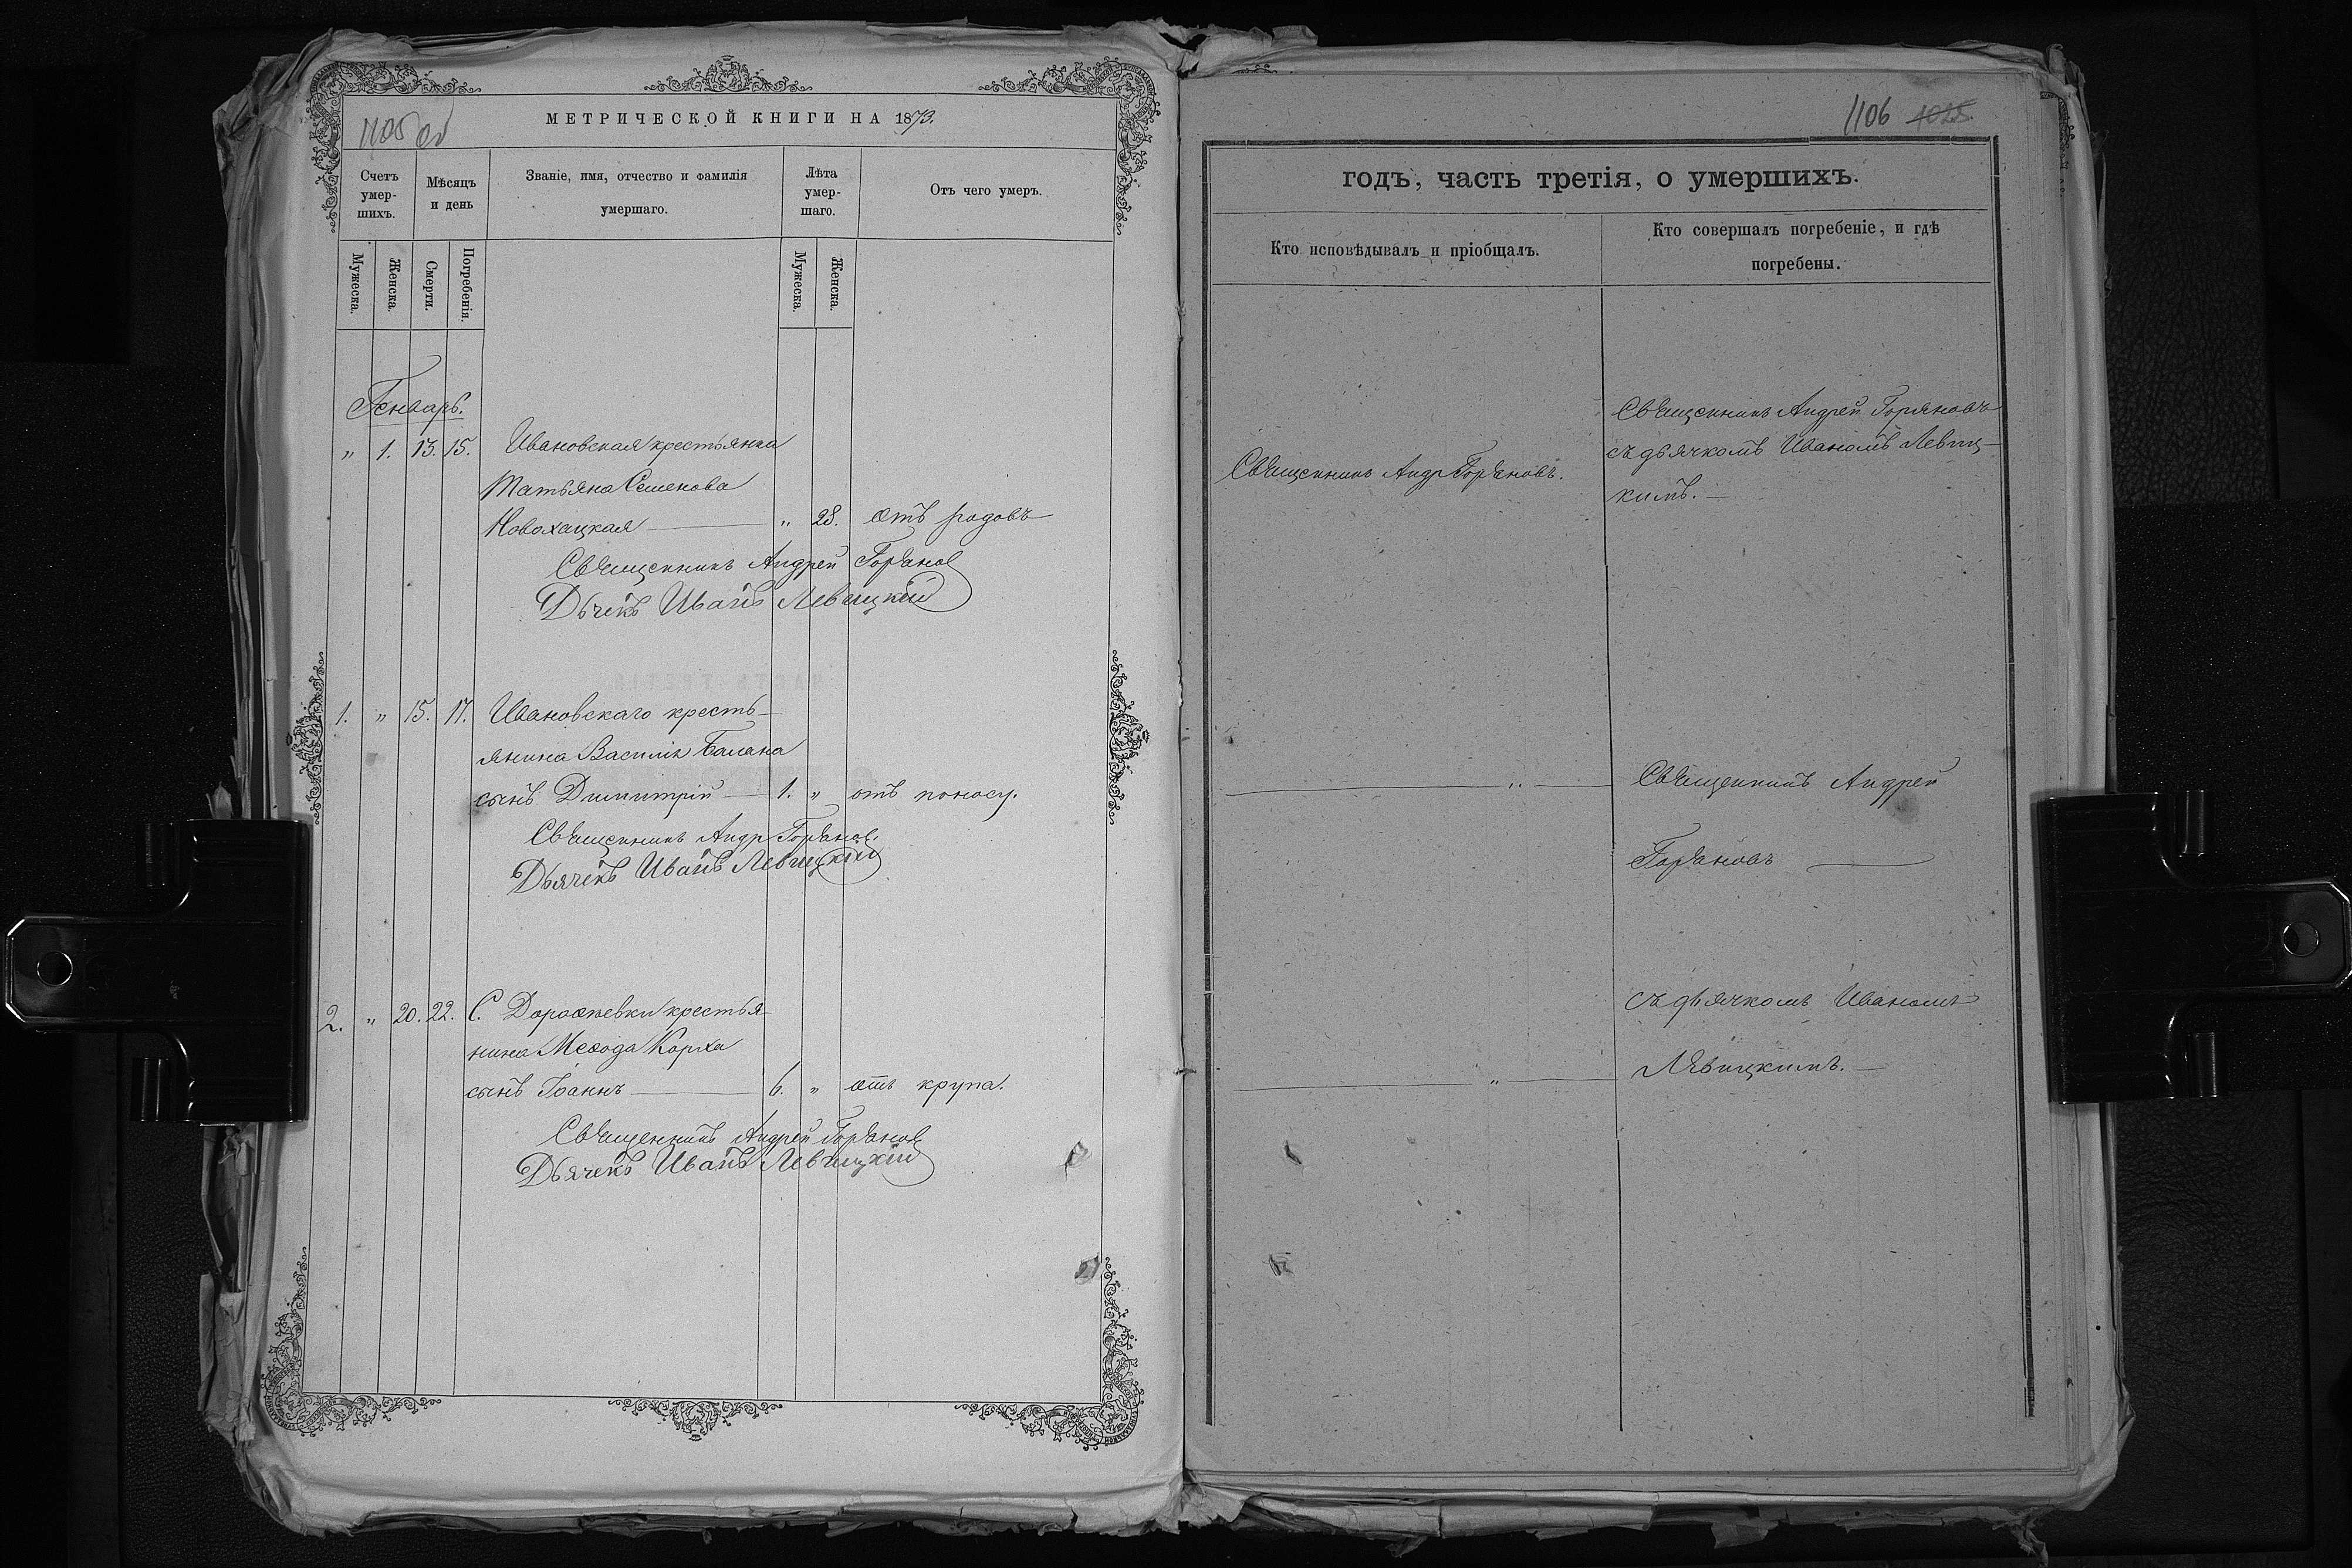 1105 об
МЕТРИЧЕСКОЙ КНИГИ НА 1873.
Счетъ умер-шихъ.
Мѣсяцъ и день
Званіе, имя, отчество и фамилія умершаго.
Лѣта умер-шаго.
Отъ чего умеръ.
Мужеска. Женска. Смерти. Погребенія. Мужеска. Женска.
Генварь.
" 1. 13. 15. Ивановская крестьянка
Татьяна Семенова
Новохацкая — " 28. отъ родовъ
Священникъ Андрей Горянов
Дьчекъ Иванъ Левицкій
1. " 15. 17. Ивановскаго кресть-
янина Василія Балана
сынъ Димитрій — 1. " отъ поносу.
Священникъ Андр Горянов.
Дьячекъ Иванъ Левицкій
2. " 20. 22. С. Дорофеевки крестья-
нина Меѳода Коржа
сынъ Іоаннъ — 6. " отъ крупа.
Священникъ Андрей Горянов
Дьячекъ Иванъ Левицкій
1106 1025
годъ, часть третія, о умершихъ.
Кто исповѣдывалъ и пріобщалъ.
Кто совершалъ погребеніе, и гдѣ
погребены.
Священникъ Андр Горяновъ.
Священникъ Андрей Горяновъ
съ дьячкомъ Иваномъ Левиц-
кимъ. —
— " — Священникъ Андрей
Горяновъ —
съ дьячкомъ Иваномъ
— " — Левицкимъ. —